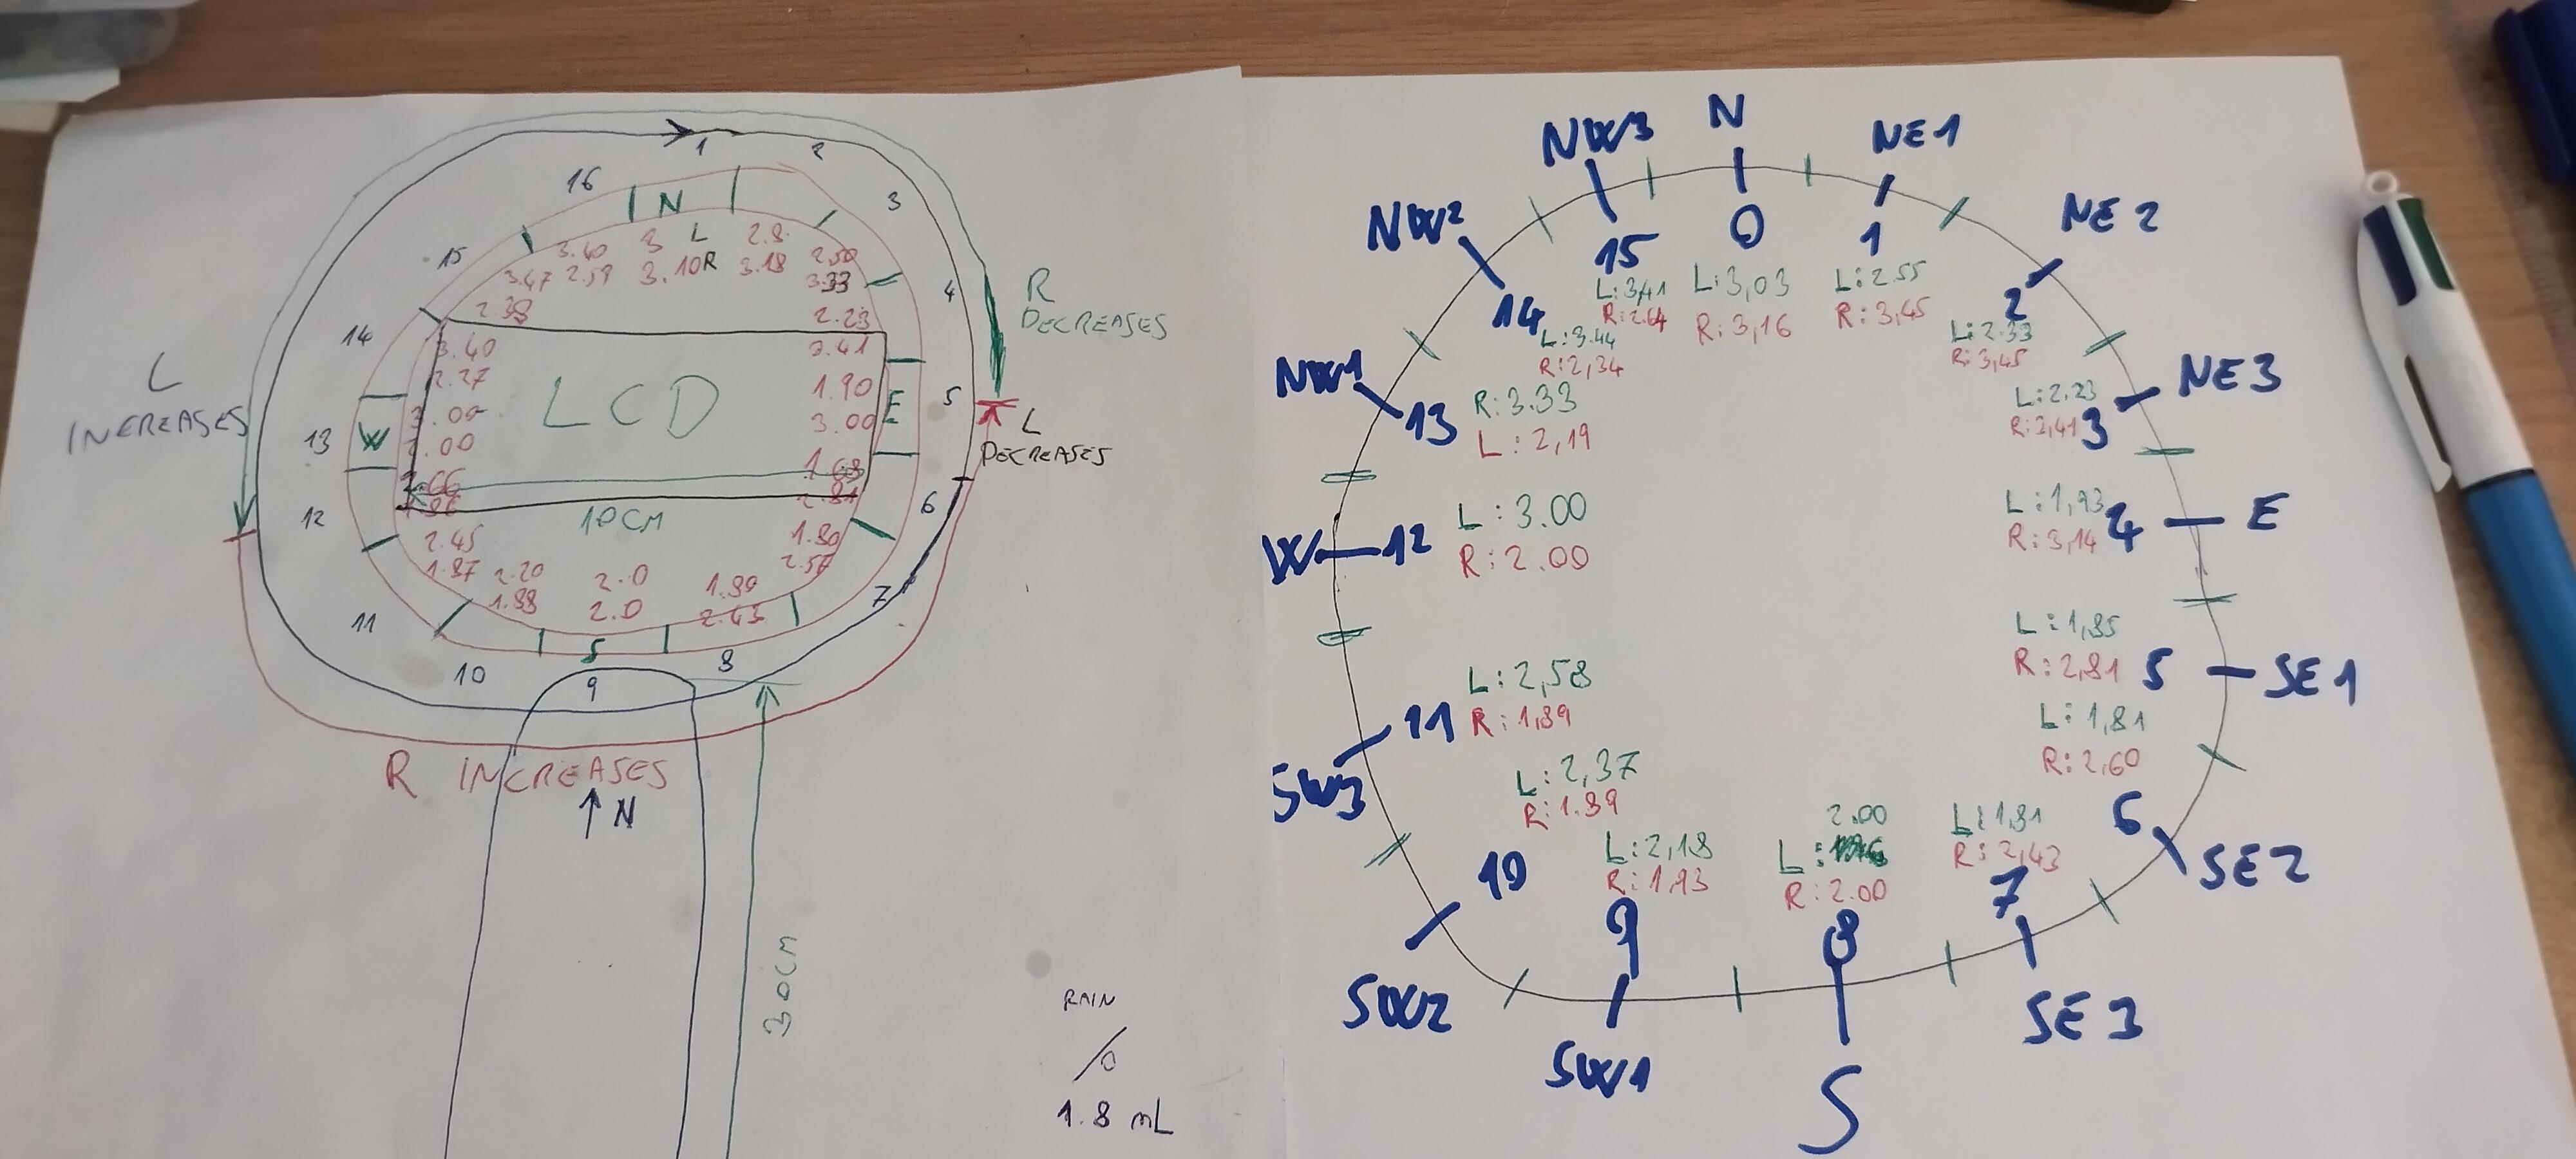 1
2
3
4
5
6
7
8
9
10
11
12
13
14
15
16
N
L
3.40
3
2.8
2.50
3.47
2.59
3.10R
3.18
3.33
2.38
2.23
3.40
3.41
2.27
LCD
1.90
E
3.00
3.00
W
2.00
1.68
2.81
10CM
2.45
1.80
1.87
2.20
2.0
1.89
2.56
1.88
2.0
2.43
S
L
INEREASES
R
DECREASES
L
DECREASES
R INCREASES
↑ N
30CM
RAIN
1.8 mL
N
0
L:3,03
R:3,16
NE1
1
L:2.55
R:3,45
NE2
2
L:2.33
R:3,45
NE3
3
L:2,23
R:3,41
E
4
L:1,93
R:3,14
SE1
5
L:1,85
R:2,81
SE2
6
L:1,81
R:2,60
SE3
7
L:1,81
R:2,43
S
8
2.00
L:
R:2.00
SW1
9
L:2,18
R:1,93
SW2
10
L:2,37
R:1.89
SW3
11
L:2,58
R:1,89
W
12
L:3.00
R:2.00
NW1
13
R:3.33
L:2,19
NW2
14
L:3.44
R:2,34
NW3
15
L:3,41
R:2.64